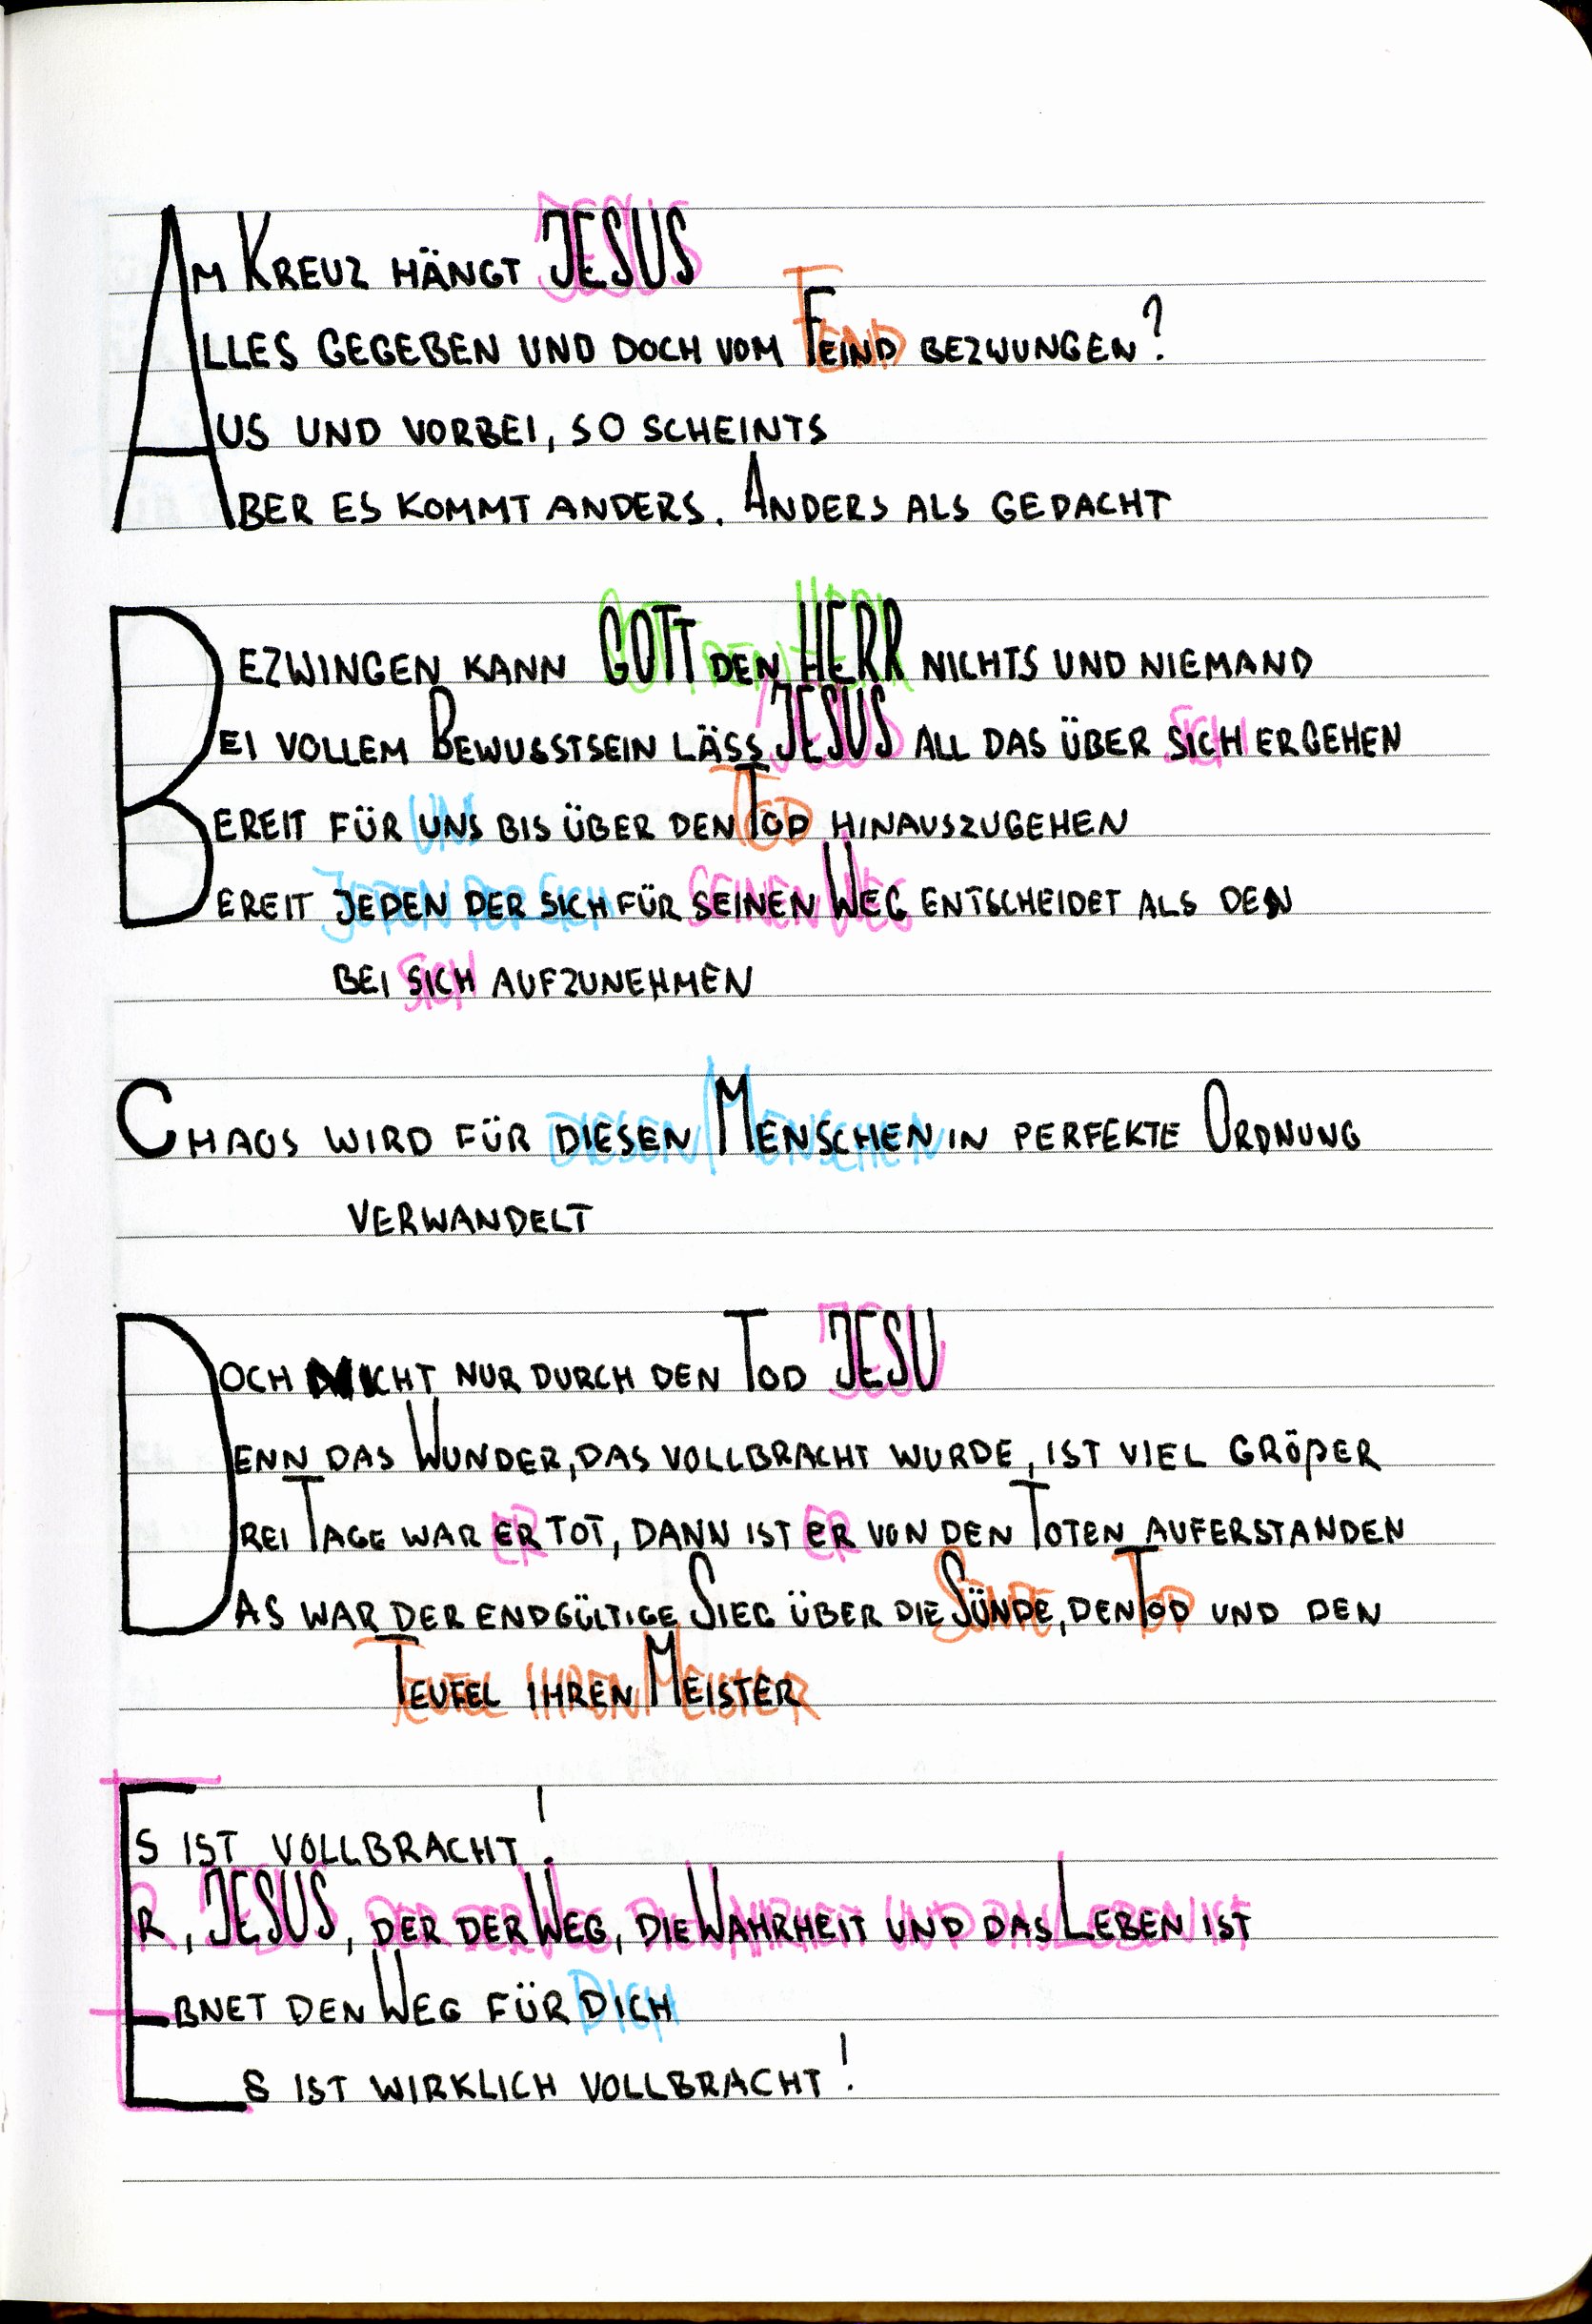 Am Kreuz hängt JESUS
Alles gegeben und doch vom Feind bezwungen?
Aus und vorbei, so scheints
Aber es kommt anders. Anders als gedacht
Bezwingen kann GOTT den HERR nichts und niemand
Bei vollem Bewusstsein läss JESUS all das über sich ergehen
Bereit für uns bis über den Tod hinauszugehen
Bereit jeden der sich für seinen Weg entscheidet als den
bei sich aufzunehmen
Chaos wird für diesen Menschen in perfekte Ordnung
verwandelt
Doch nicht nur durch den Tod JESU
Denn das Wunder, das vollbracht wurde, ist viel größer
Drei Tage war er tot, dann ist er von den Toten auferstanden
Das war der endgültige Sieg über die Sünde, den Tod und den
Teufel ihren Meister
Es ist vollbracht!
Er, JESUS, der der Weg, die Wahrheit und das Leben ist
Ebnet den Weg für dich
Es ist wirklich vollbracht!